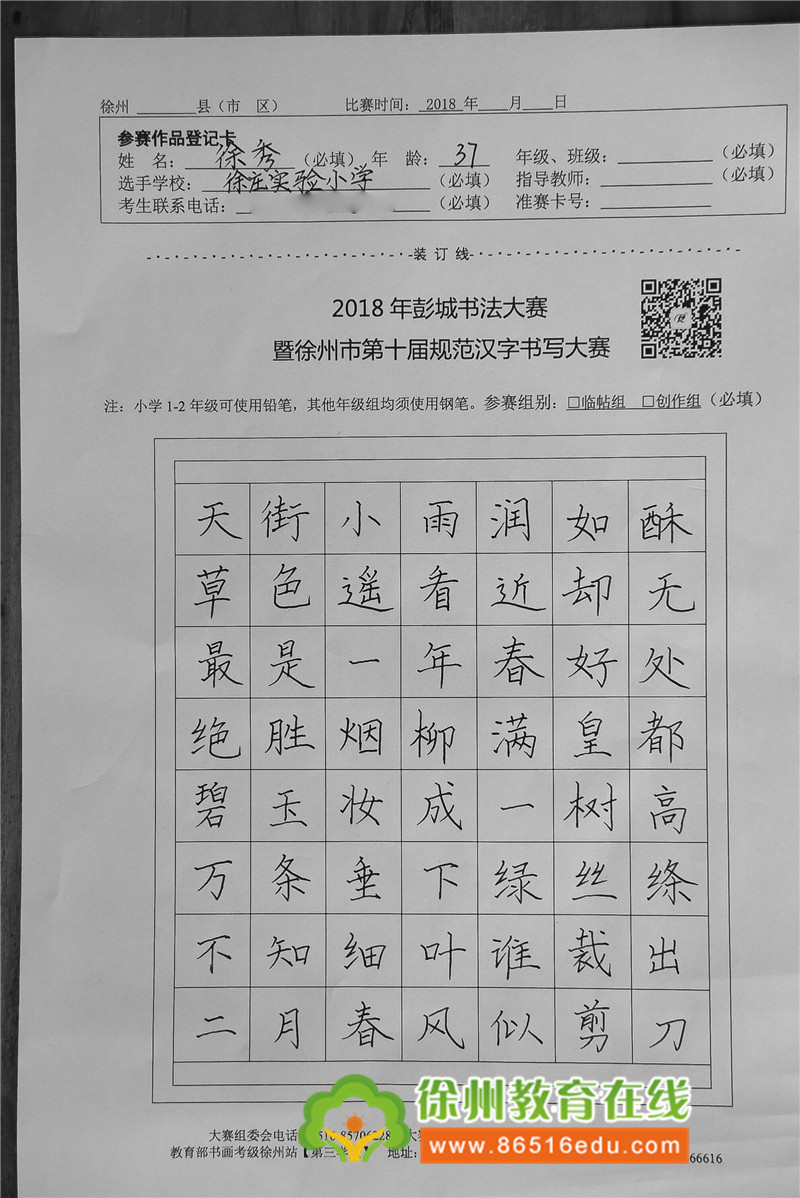 徐州 ________县（市 区） 比赛时间：_2018_年____月____日
参赛作品登记卡
姓 名：徐秀（必填）年 龄：37 年级、班级：____________（必填）
选手学校：徐庄实验小学（必填） 指导教师：____________（必填）
考生联系电话：____________（必填） 准赛卡号：____________
装 订 线
2018 年彭城书法大赛
暨徐州市第十届规范汉字书写大赛
注：小学 1-2 年级可使用铅笔，其他年级组均须使用钢笔。参赛组别：□临帖组 □创作组（必填）
天街小雨润如酥
草色遥看近却无
最是一年春好处
绝胜烟柳满皇都
碧玉妆成一树高
万条垂下绿丝绦
不知细叶谁裁出
二月春风似剪刀
徐州教育在线
www.86516edu.com
大赛组委会电话
教育部书画考级徐州站【第三 地址： 66616